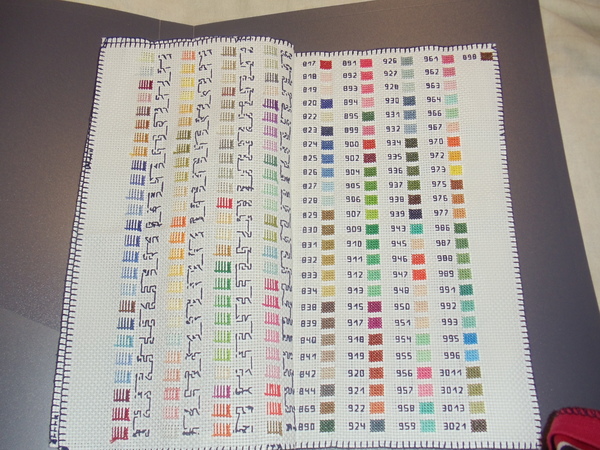 817 891 926 961 898
818 892 927 962
819 893 928 963
820 894 930 964
822 895 931 966
823 899 932 967
824 900 934 970
825 902 935 972
826 904 936 973
827 905 937 975
828 906 938 976
829 907 939 977
830 909 943 986
831 910 945 987
832 911 946 988
833 912 947 989
834 913 948 991
838 915 950 992
839 917 951 993
840 918 954 995
841 919 955 996
842 920 956 3011
844 921 957 3012
869 922 958 3013
890 924 959 3021